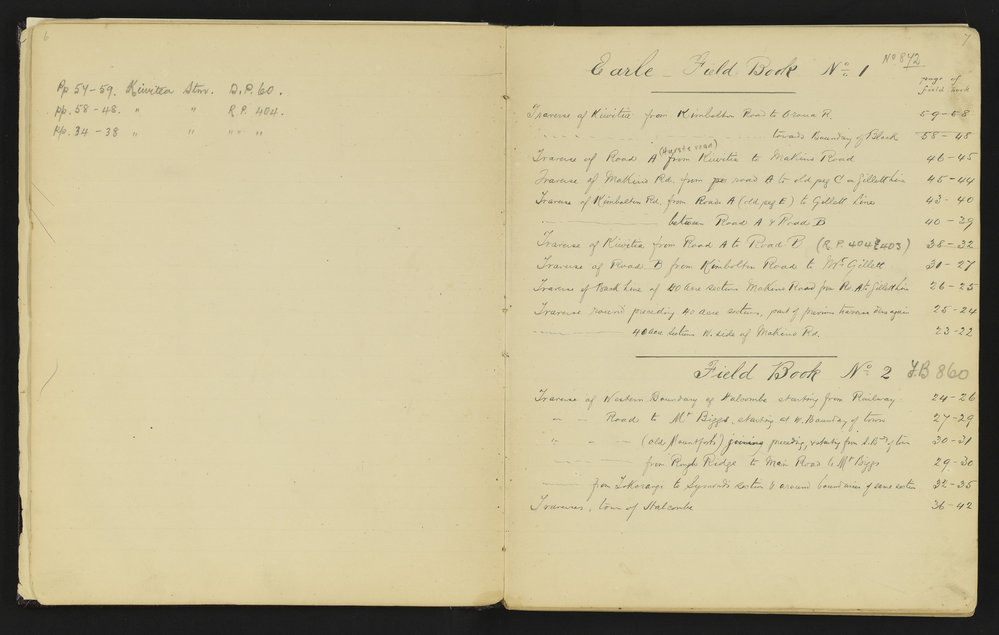 6
Pp 57-59. Kiwitea Surv. D.P. 60.
pp. 58-48. " " R.P. 404.
Pp. 34-38 " " " " "
7
Earle - Field Book No. 1 No 872
page of
Field Book
Traverse of Kiwitea from Kimbolton Road to Oroua R 59-58
towards Boundary of Block 58-48
(Awate road)
Traverse of Road A from Kiwitea to Makino Road 46-45
Traverse of Makino Rd. from road A to old peg C on Gillett line 45-44
Traverse of Kimbolton Rd. from Road A (old peg E) to Gillett line 43-40
between Road A & Road B 40-39
Traverse of Kiwitea from Road A to Road B (R.P. 404 & 403) 38-32
Traverse of Road B from Kimbolton Road to Mr Gillett 31-27
Traverse of Back line of 40 acre sections Makino Road from Rd. A to Gillett line 26-25
Traverse round preceding 40 acre sections, part of previous traverse done again 25-24
40 acre sections W. side of Makino Rd. 23-22
Field Book No. 2 F.B 860
Traverse of Western Boundary of Halcombe starting from Railway 24-26
" - Road to Mr Biggs, starting at W. Boundary of town 27-29
" - - (old Mountfort's) joining preceding, & starting from S. Bdy of town 30-31
from Rough Ridge to Main Road to Mr Biggs 29-30
from to Symonds section & around boundaries of same section 32-35
Traverses, town of Halcombe 36-42